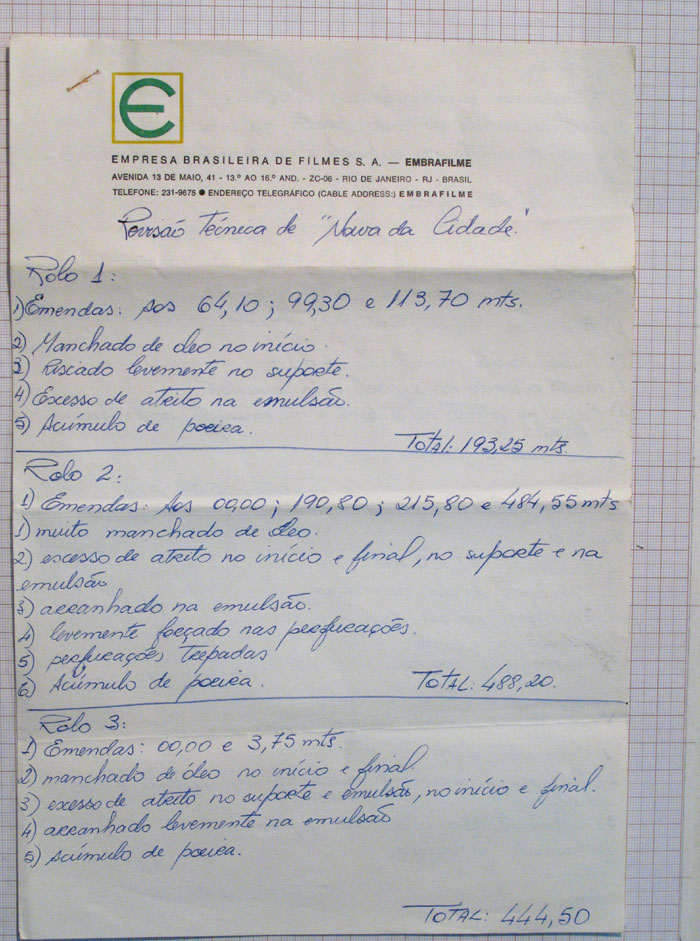 E
EMPRESA BRASILEIRA DE FILMES S. A. — EMBRAFILME
AVENIDA 13 DE MAIO, 41 - 13.º AO 16.º AND. - ZC-06 - RIO DE JANEIRO - RJ - BRASIL
TELEFONE: 231-9675 ● ENDEREÇO TELEGRÁFICO (CABLE ADDRESS:) EMBRAFILME
Revisão Técnica de "Nova da Cidade."
Rolo 1:
1) Emendas: Aos 64,10 ; 99,30 e 113,70 mts.
2) Manchado de óleo no início.
3) Riscado levemente no suporte.
4) Excesso de atrito na emulsão.
5) Acúmulo de poeira.
Total: 193,25 mts.
Rolo 2:
1) Emendas: Aos 00,00 ; 190,80 ; 215,80 e 484,55 mts
1) muito manchado de óleo.
2) excesso de atrito no início e final, no suporte e na
emulsão
3) arranhado na emulsão.
4) levemente forçado nas perfurações.
5) perfurações trepadas
6) Acúmulo de poeira.
Total: 488,20.
Rolo 3:
1) Emendas: 00,00 e 3,75 mts.
2) manchado de óleo no início e final.
3) excesso de atrito no suporte e emulsão, no início e final.
4) arranhado levemente na emulsão
5) Acúmulo de poeira.
Total: 444,50